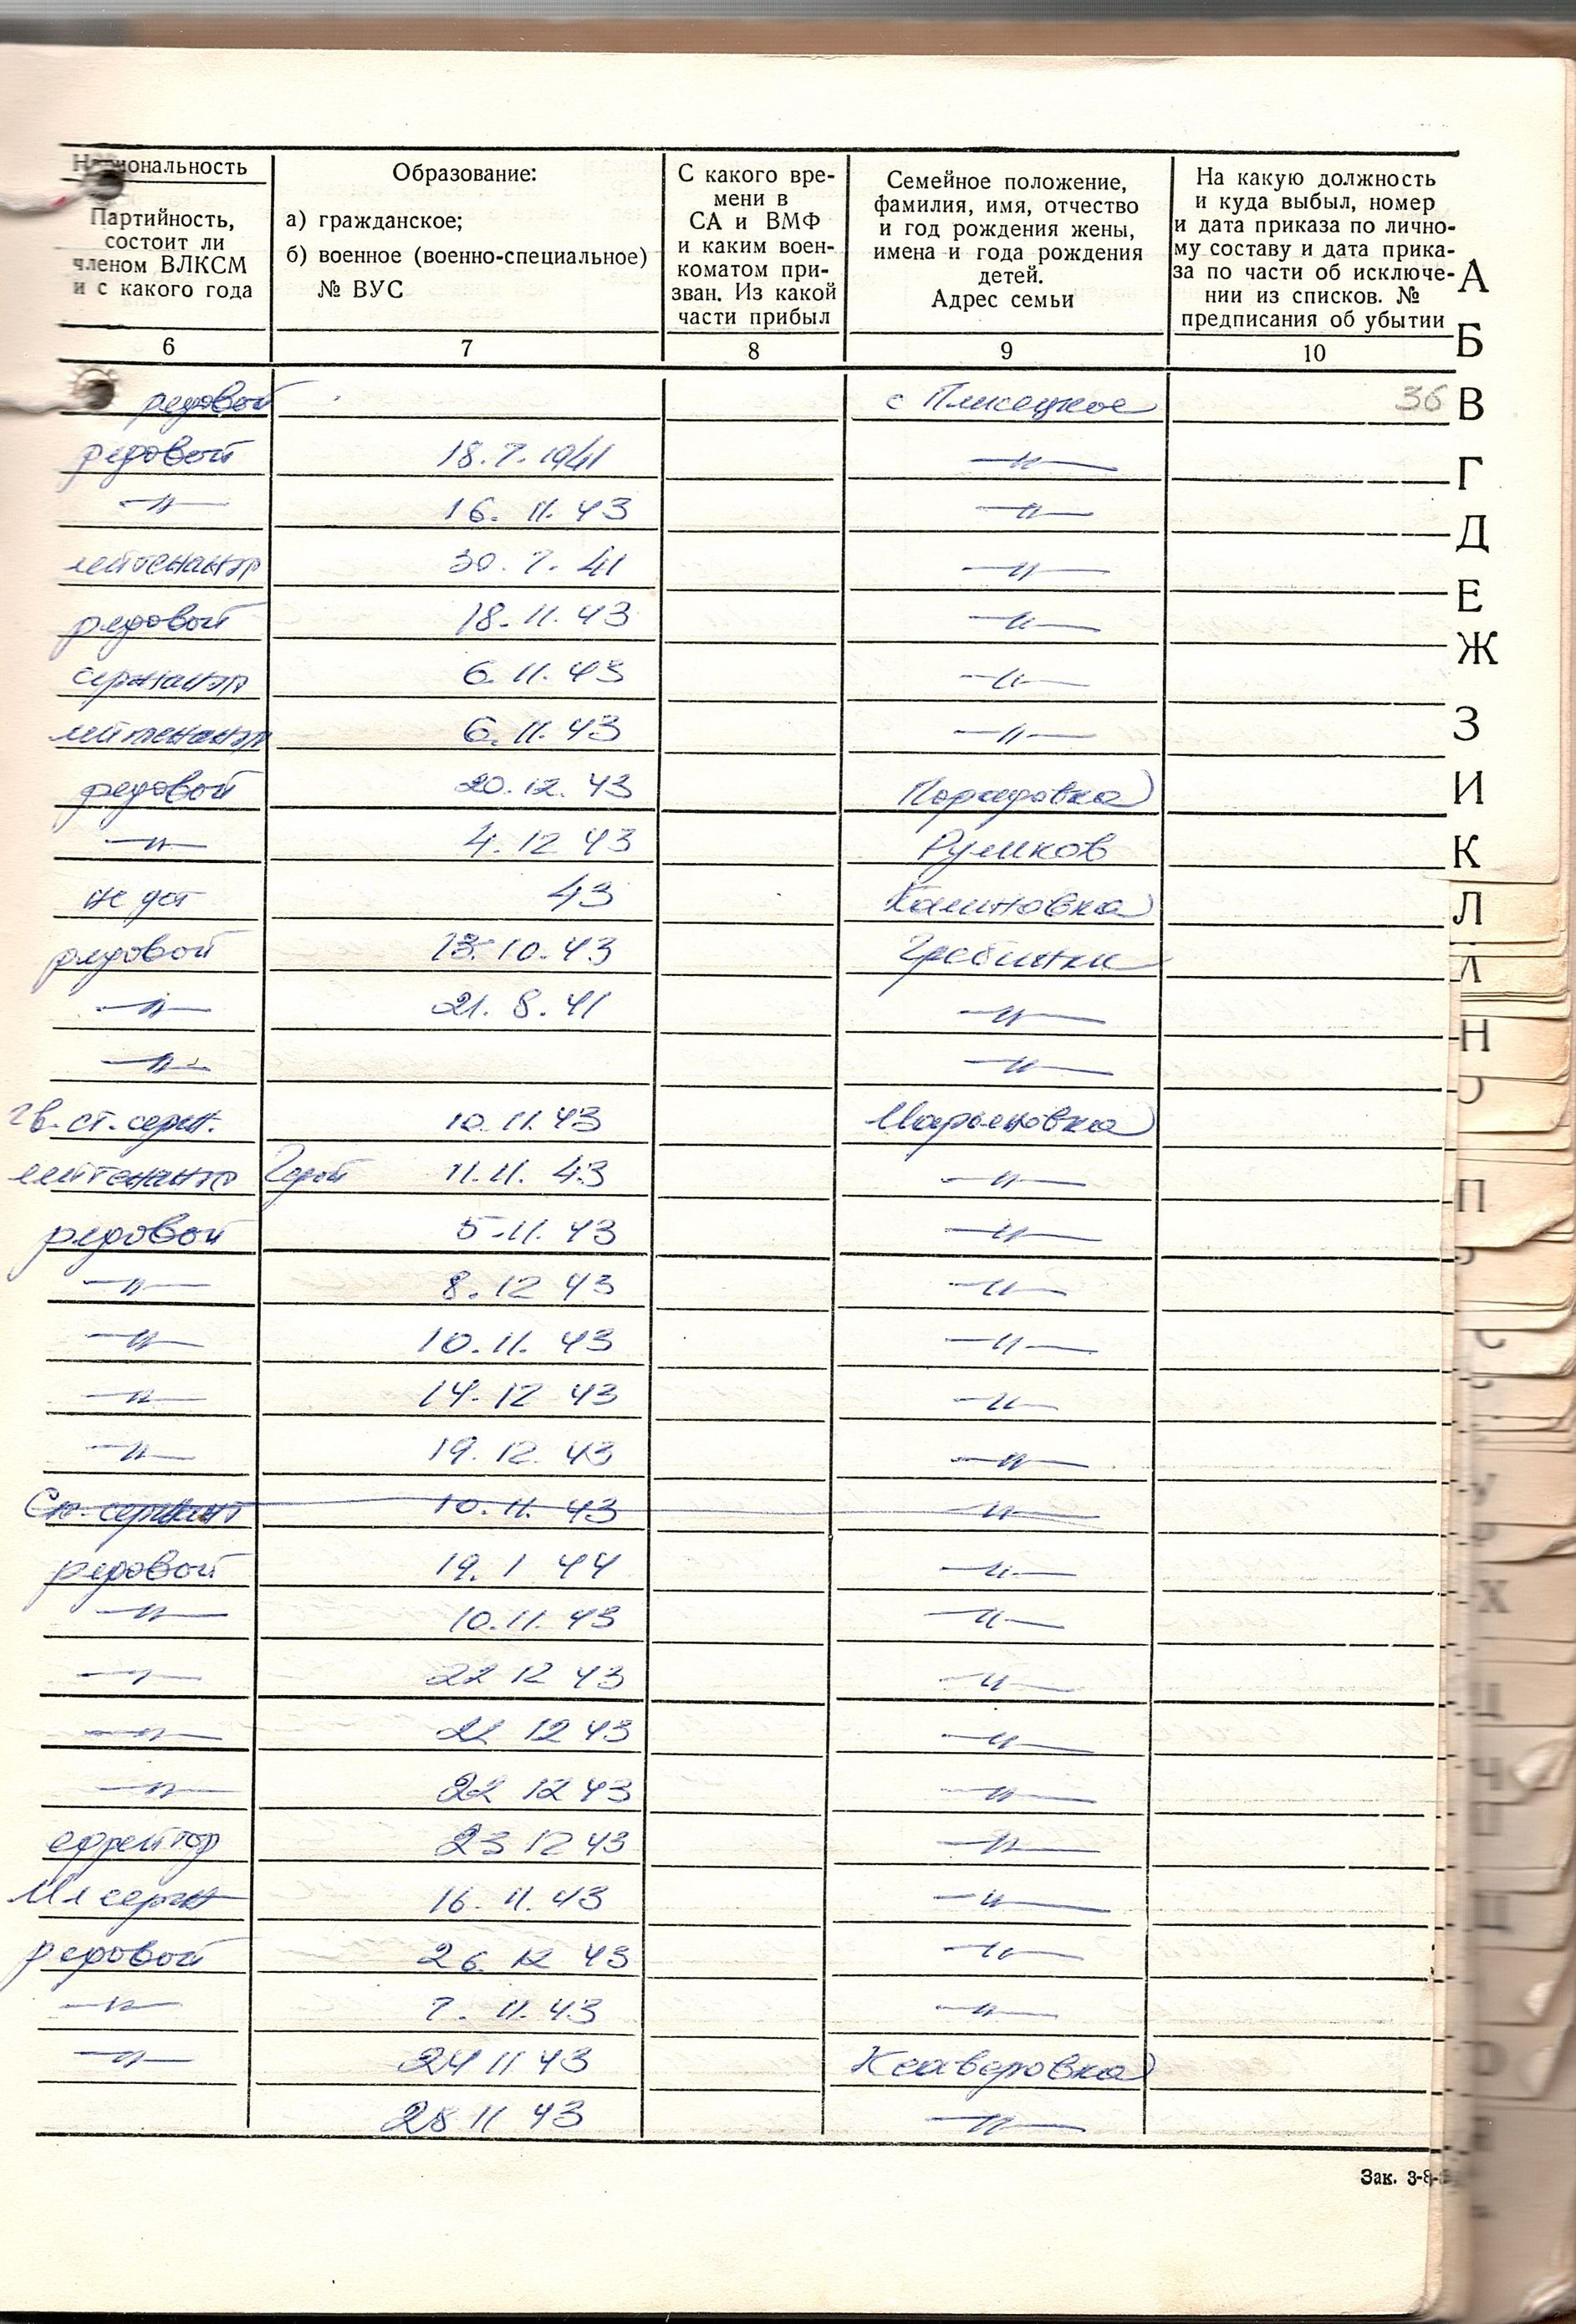 Национальность
Партийность,
состоит ли
членом ВЛКСМ
и с какого года
Образование:
а) гражданское;
б) военное (военно-специальное)
№ ВУС
С какого вре-
мени в
СА и ВМФ
и каким воен-
коматом при-
зван. Из какой
части прибыл
Семейное положение,
фамилия, имя, отчество
и год рождения жены,
имена и года рождения
детей.
Адрес семьи
На какую должность
и куда выбыл, номер
и дата приказа по лично-
му составу и дата прика-
за по части об исключе-
нии из списков. №
предписания об убытии
6 7 8 9 10
редовой с Плисецкое 36
редовой 18.7.1941 —"—
—"— 16.11.43 —"—
лейтенант 30.7.41 —"—
редовой 18.11.43 —"—
сержант 6.11.43 —"—
лейтенант 6.11.43 —"—
редовой 20.12.43 Порадовка
—"— 4.12 43 Руликов
не дот 43 Калиновка
редовой 13.10.43 Гребинки
—"— 21.8.41 —"—
—"— —"—
гв.ст.серж. 10.11.43 Марьяновка
лейтенант Герой 11.11.43 —"—
редовой 5.11.43 —"—
—"— 8.12 43 —"—
—"— 10.11.43 —"—
—"— 14.12 43 —"—
—"— 19.12.43 —"—
Ст. сержант 10.11.43 —"—
редовой 19.1 44 —"—
—"— 10.11.43 —"—
—"— 22 12 43 —"—
—"— 22 12 43 —"—
—"— 22 12 43 —"—
ефрейтор 23 12 43 —"—
Мл серж 16.11.43 —"—
редовой 26.12 43 —"—
—"— 7.11.43 —"—
—"— 24 11 43 Ксаверовка
28 11 43 —"—
Зак. 3-8-
А
Б
В
Г
Д
Е
Ж
З
И
К
Л
Н
П
У
Х
Ц
Ч